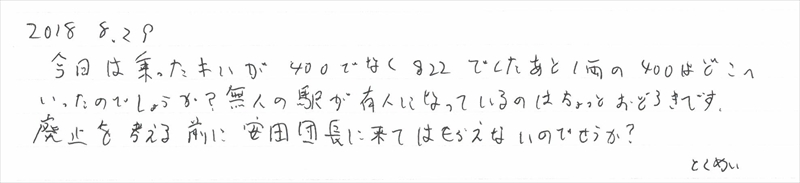 2018 8.29
今日は乗ったキハが400でなく822でしたあと1両の400はどこへ
いったのでしょうか?無人の駅が有人になっているのはちょっとおどろきです.
廃止を考える前に安田団長に来てはもらえないのでせうか?
とくめい